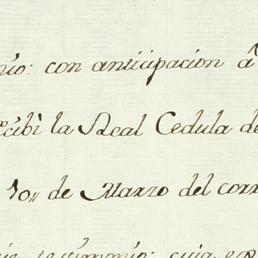 nio: con anticipación á
recibì la Real Cedula de
10,, de Marzo del corr
testimonio: cuia